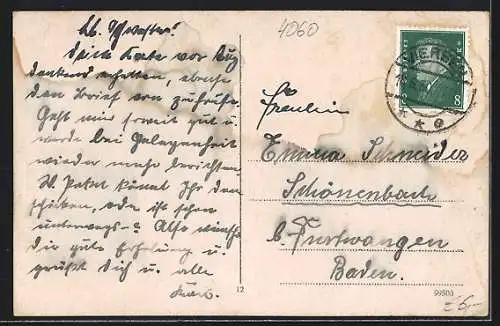 lb. Schwester!
Deine Karte vor Aug
dankend erhalten, ebenso
den Brief von
Geht mir soweit gut u.
werde bei Gelegenheit
wieder mehr berichten.
W. Paket könnt Ihr dann
schicken, oder ist schon
unterwegs? Also wünsche
dir gute Erholung u.
grüßt Dich u. alle
4060
8
Fräulein
Emma Schneider
Schönenbach
b. Furtwangen
Baden.
12
99503